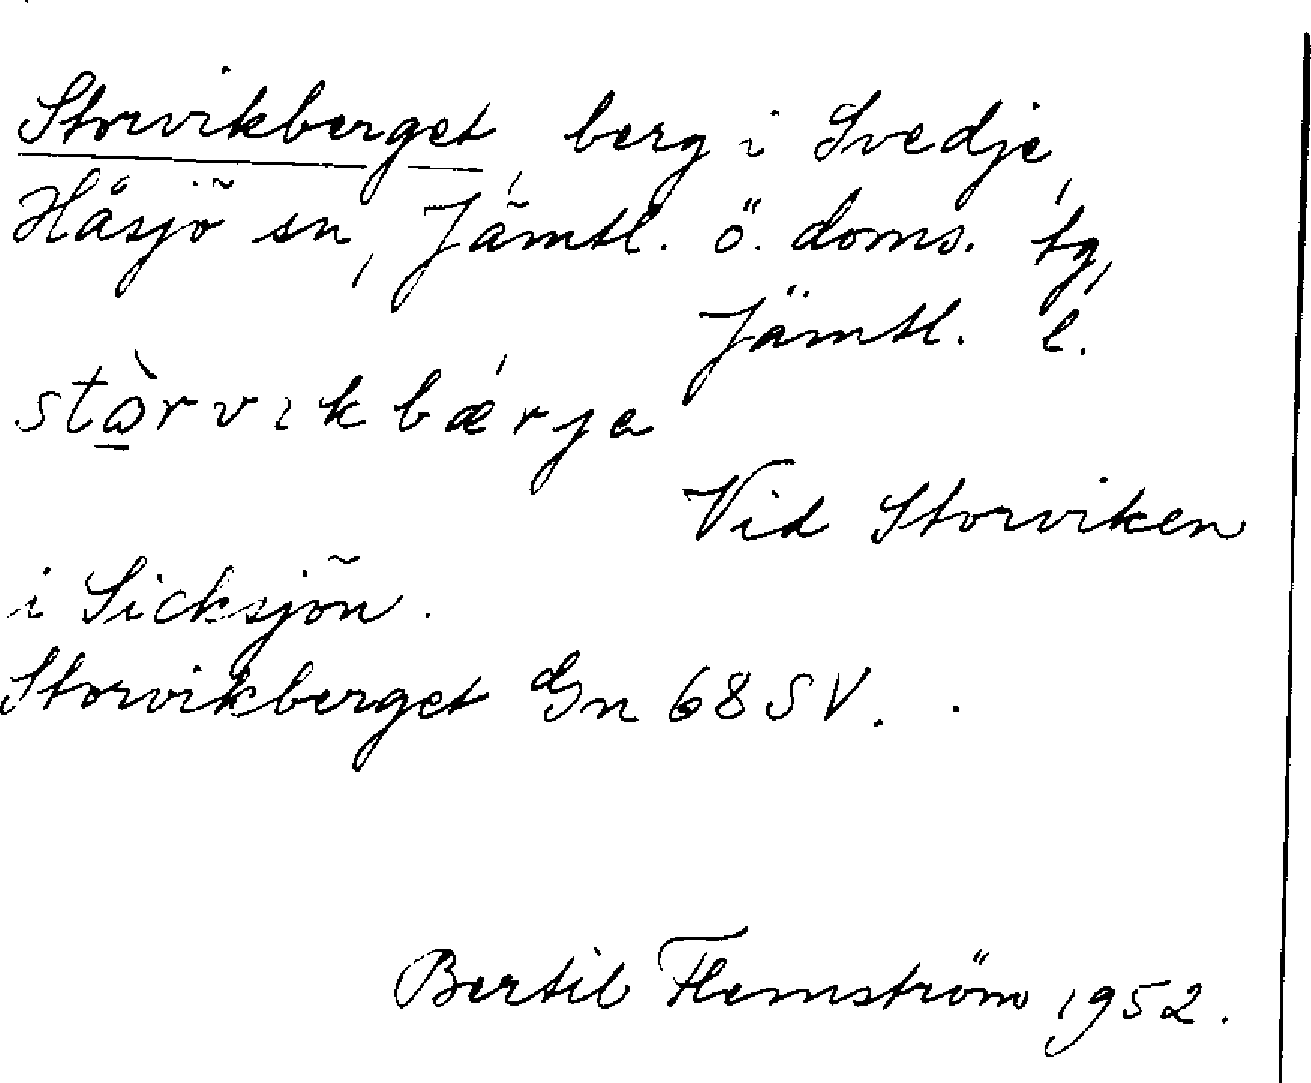 Storvikberget, berg i Svedje,
Håsjö sn, Jämtl. ö. doms. tg,
Jämtl. l.
stὼ̲rvıkbǽrja
Vid Storviken
i Sicksjön.
Storvikberget Gn 68 SV.
Bertil Flemström 1952.